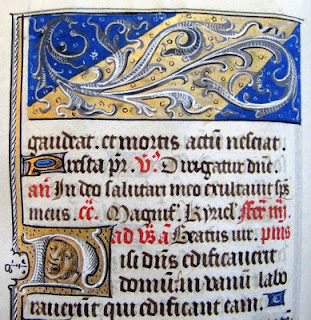 gaudeat. et mortis actū nesciat.
Presta pr̄. V̊. Dirigatur dn̄e.
an̄ In deo salutari meo exultavit sp̄s
meus. cc̄. Magnif. Kyriel. fer̄ iiij
ad v̄s an̄ Beatus vir. p̄us
Nisi dn̄s edificaverit
domū: in vanū labo
raverūt qui edificant eam.